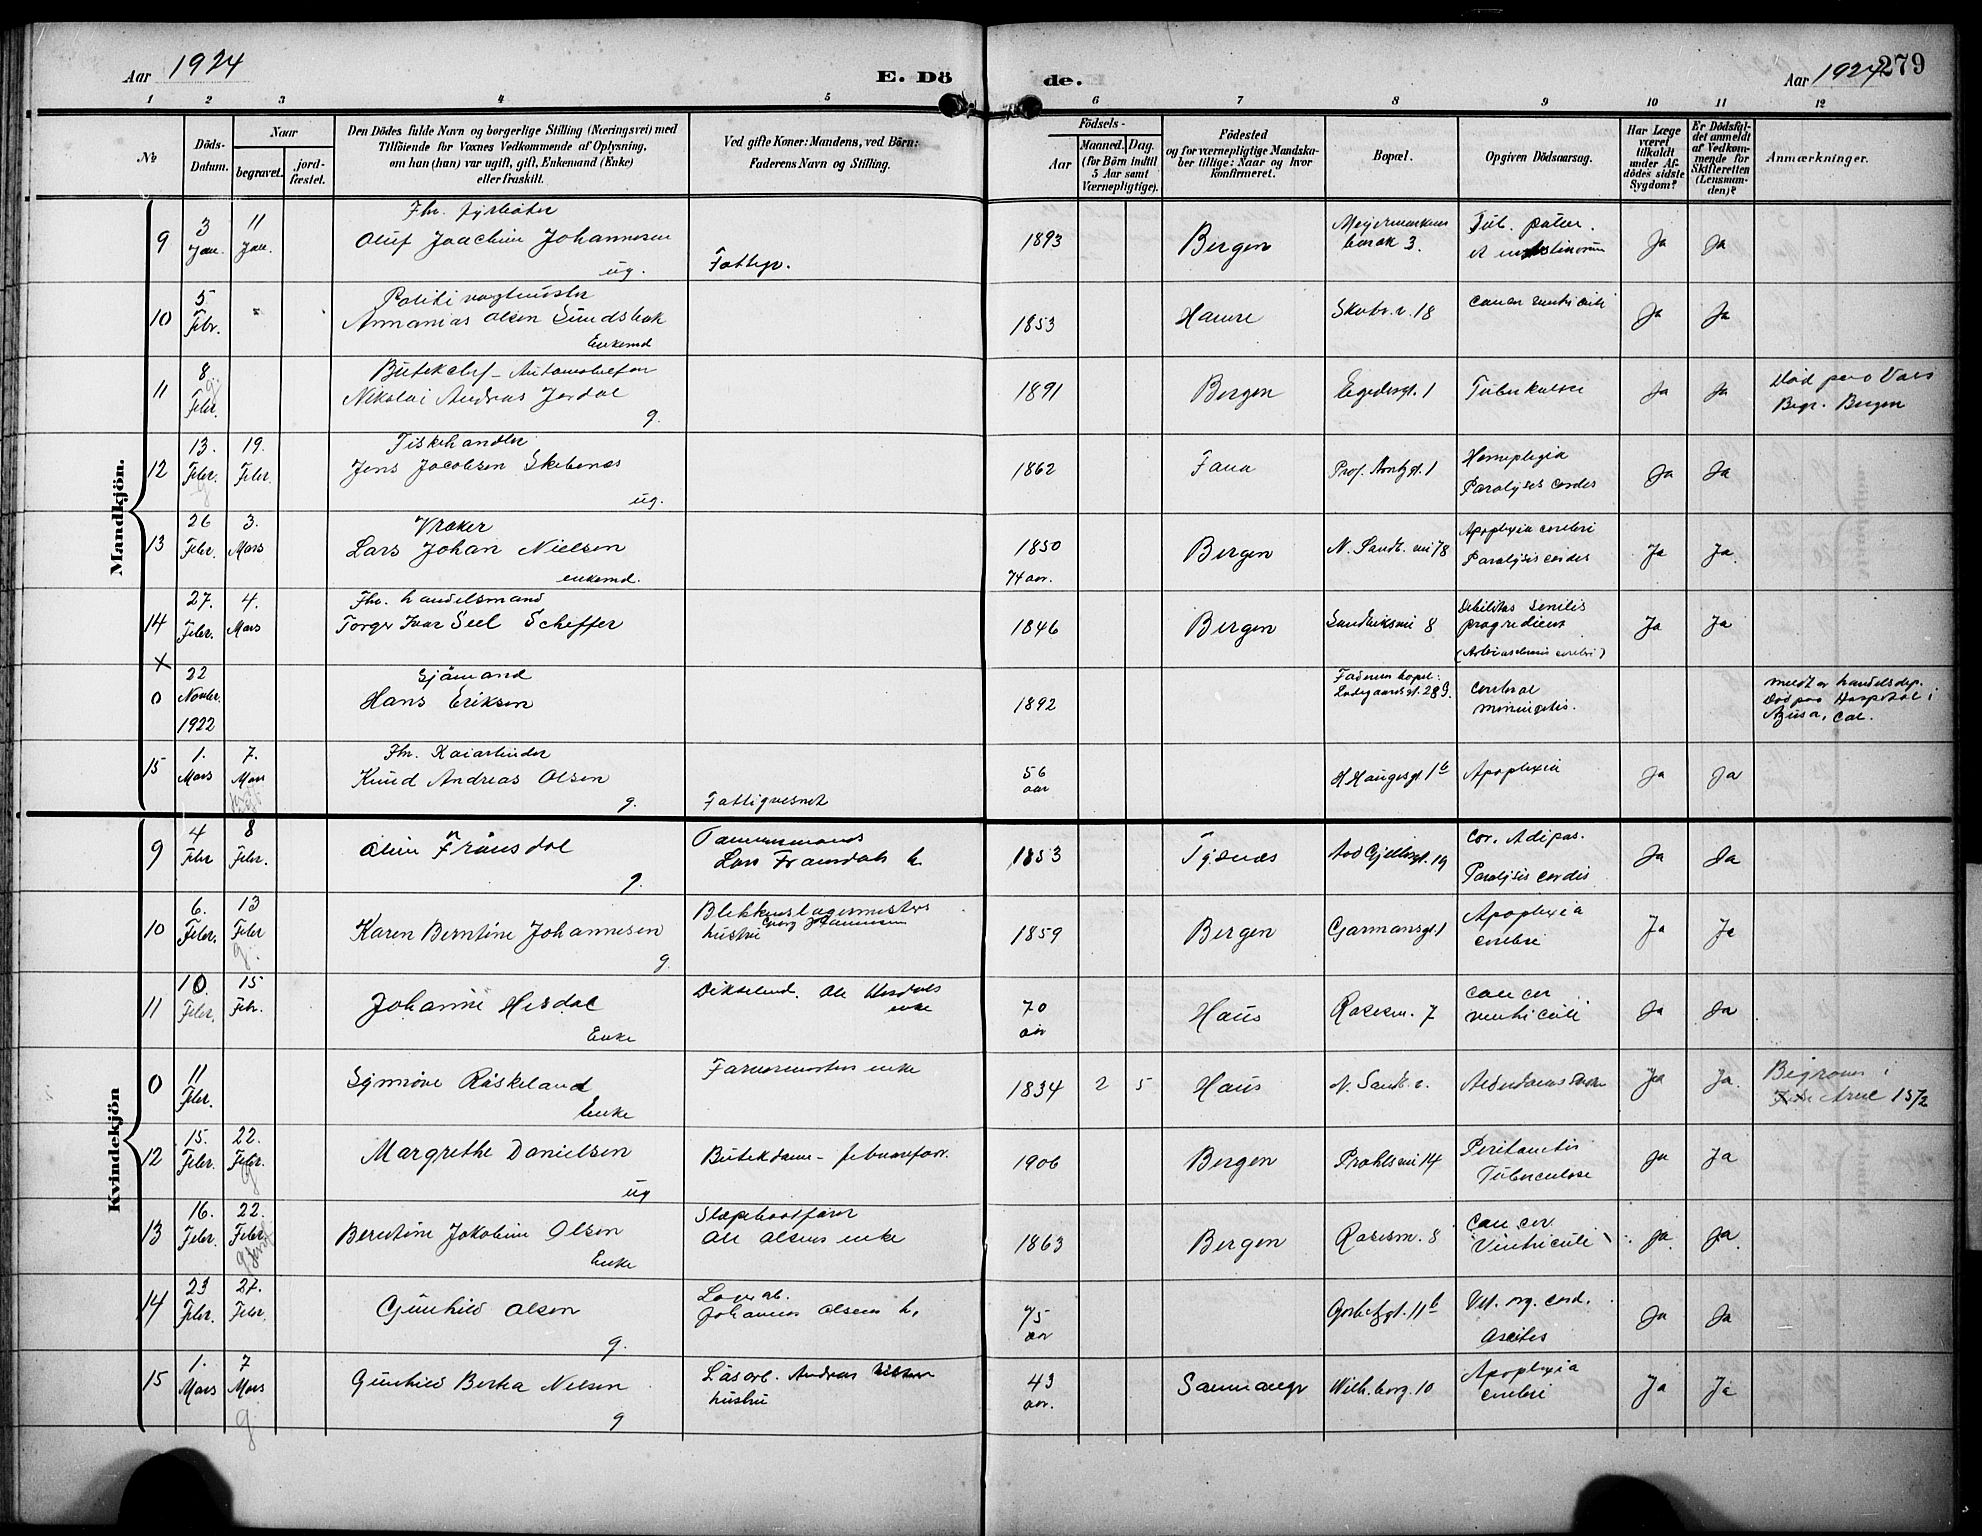 Aar 1924
E. Döde.
Aar 1924
279
1 2 3 4 5 6 7 8 9 10 11 12
No
Döds-Datum.
Naar
begravet.
jordfæstet.
Den Dödes fulde Navn og borgerlige Stilling (Næringsvei) med
Tilföiende for Voxnes Vedkommende af Oplysning,
om han (hun) var ugift, gift, Enkemand (Enke)
eller fraskilt.
Ved gifte Koner: Mandens, ved Börn:
Faderens Navn og Stilling.
Födsels-
Aar
Maaned. Dag.
(for Börn indtil
5 Aar samt
Værnepligtige).
Födested
og for værnepligtige Mandskaber tillige: Naar og hvor
konfirmeret.
Bopæl.
Opgiven Dödsaarsag.
Har Læge
været
tilkaldt
under Afdödes sidste
Sygdom?
Er Dödsfaldet anmeldt
af Vedkommende for
Skifteretten
(Lensmanden)?
Anmærkninger.
Mandkjön.
9 3 Jan. 11 Jan. Fhv. fyrböter
Oluf Joachim Johannesen ug. Fattigv. 1893 Bergen 3. Tub. pulm. et intestinorum Ja Ja
10 5 Febr. " Politivagtmester
Annanias Olsen Sundsbak Enkemd 1853 Hamre Skutev. v. 18 Cancer ventriculi Ja Ja
11 8 Febr. Butekchf - Automobilfor
Nikolai Andreas Jordal g. 1891 Bergen Egedesgt. 1 Tuberkulose Ja Ja Död paa Voss
Begr. Bergen
12 13. Febr. 19. Febr. Fiskehandler
Jens Jacobsen Skebenes ug. 1862 Fana Prof. Arntzgt. 1 Hemiplegia
Paralysis cordis Ja Ja
13 26 Febr. 3. Mars Vraker
Lars Johan Nielsen enkemd. 1850
74 aar. Bergen N. Sandv. vei 78 Apoplexia cerebri
Paralysis cordis Ja Ja
14 27. Febr. 4. Mars Fhv. handelsmand
Torger Ivar Seel Scheffer 1846 Bergen Sandviksvei 8 Debilitas senilis
progredient Ja Ja
x
0 22 Novbr. 1922 Sjömand
Hans Eriksen 1892 Faderens bopæl:
Ladegaardsgt. 28 cerebral
meningitis. meldt av handelsdep.
Död paa Hospital i
Azusa, Cal.
15 1. Mars 7. Mars Fhv. Kaiarbeider
Knud Andreas Olsen g. Fattigvesnet 56
aar H Haugesgt 1b Apoplexia Ja Ja
Kvindekjön
9 4 Febr 8 Febr. Oline Frånsdal g. Tømmermand
Lars Framdals h. 1853 Tysnes 19 Cor. Adipos.
Paralysis cordis Ja Ja
10 6. Febr. 13 Febr Karen Berntine Johannesen g. Blikkenslagermesters
hustru Georg Johannesen 1859 Bergen Garmansgt. 1 Apoplexia
cerebri Ja Ja
11 10. Febr. 15 Febr. Johanne Hesdal Enke Ole Hesdals
enke 70
aar Haus Rosesm. 7 Cancer
ventriculi Ja Ja
0 11 Febr. Synnöve Röskeland Enke Farvermesters enke 1834 2 5 Haus N. Sandv. v. Ja Ja. Begraves i
Arne 15/2
12 15. Febr. 22. Febr. Margrethe Danielsen ug Butekdame - 1906 Bergen Prahlsvei 14 Peritonitis
Tuberculose Ja Ja
13 16. Febr. 22. Febr. Berntine Jakobine Olsen Enke Slæpebaatförer
Ole Olsens enke 1863 Bergen Rosesm. 8 Cancer
Ventriculi Ja Ja
14 23 Febr. 27. Febr. Gunhild Olsen g. Johannes Olsens h. 75
aar 11b Vit. org. cord.
Ascites Ja Ja
15 1. Mars 7 Mars Gunhild Berta Nelson g Lösarb. Andreas
hustru 43
aar. Samnanger Wilh. borg. 10 Apoplexia
cerebri Ja Ja